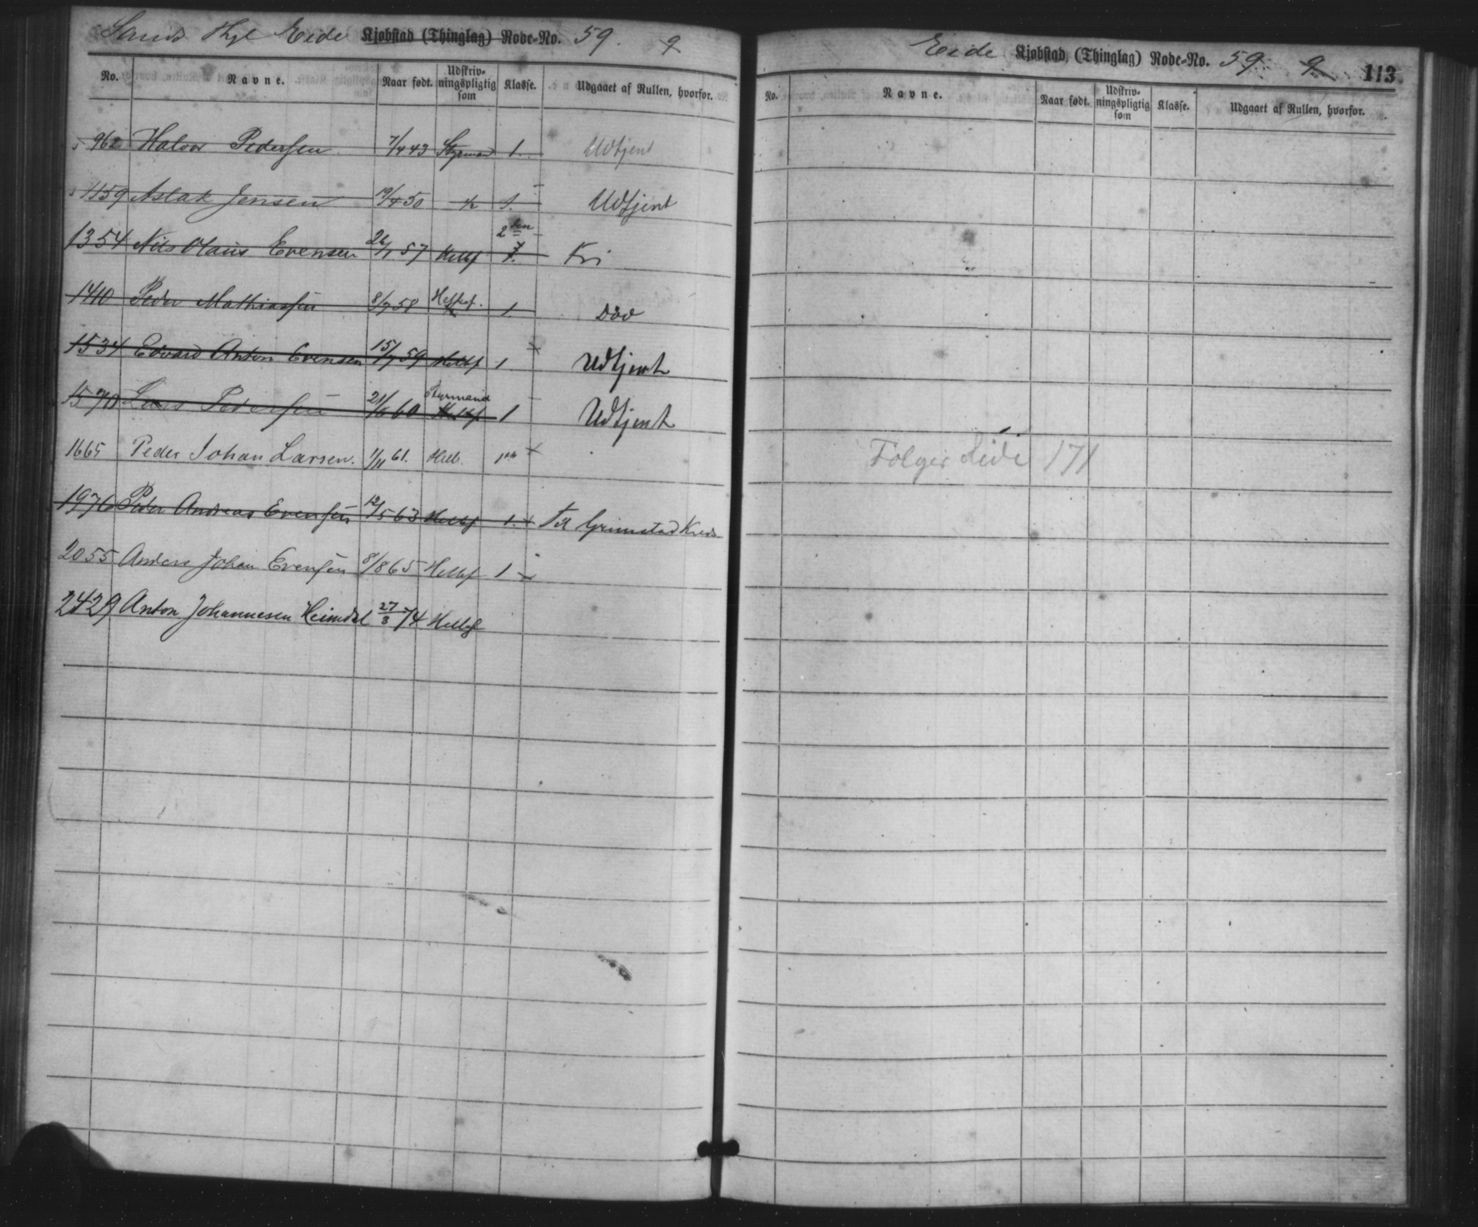 Eide Kjøbstad (Thinglag) Rode-No. 59. 9
No. Navne. Naar født. Udskrivningspligtig som Klasse. Udgaaet af Rullen, hvorfor.
962 Halvor Pedersen 7/4 43 Styrmand 1. Udtjent
1159 Aslak Jensen 19/4 50 1. Udtjent
1354 Nils Olaus Evensen 26/1 57 Helbf 2den Fri
1410 Peder Mathiassen 8/7 58 1. Død
1534 Edvard Anton Evensen 15/7 59 Helbf 1 Udtjent
1570 Lars Pedersen 21/6 60 Styrmand Helbf 1 Udtjent
1665 Peder Johan Larsen. 1/11 61. Helb.
1976 Peder Andreas Evensen 12/5 63 Helbf 1. Til Grimstad Kreds
2055 Anders Johan Evensen 8/8 65 Helbf 1
2429 Anton Johannesen Heimdal 27/8 74 Helbf
Eide Kjøbstad (Thinglag) Rode-No. 59. 9. 113
No. Navne. Naar født. Udskrivningspligtig som Klasse. Udgaaet af Rullen, hvorfor.
Følger Side 171